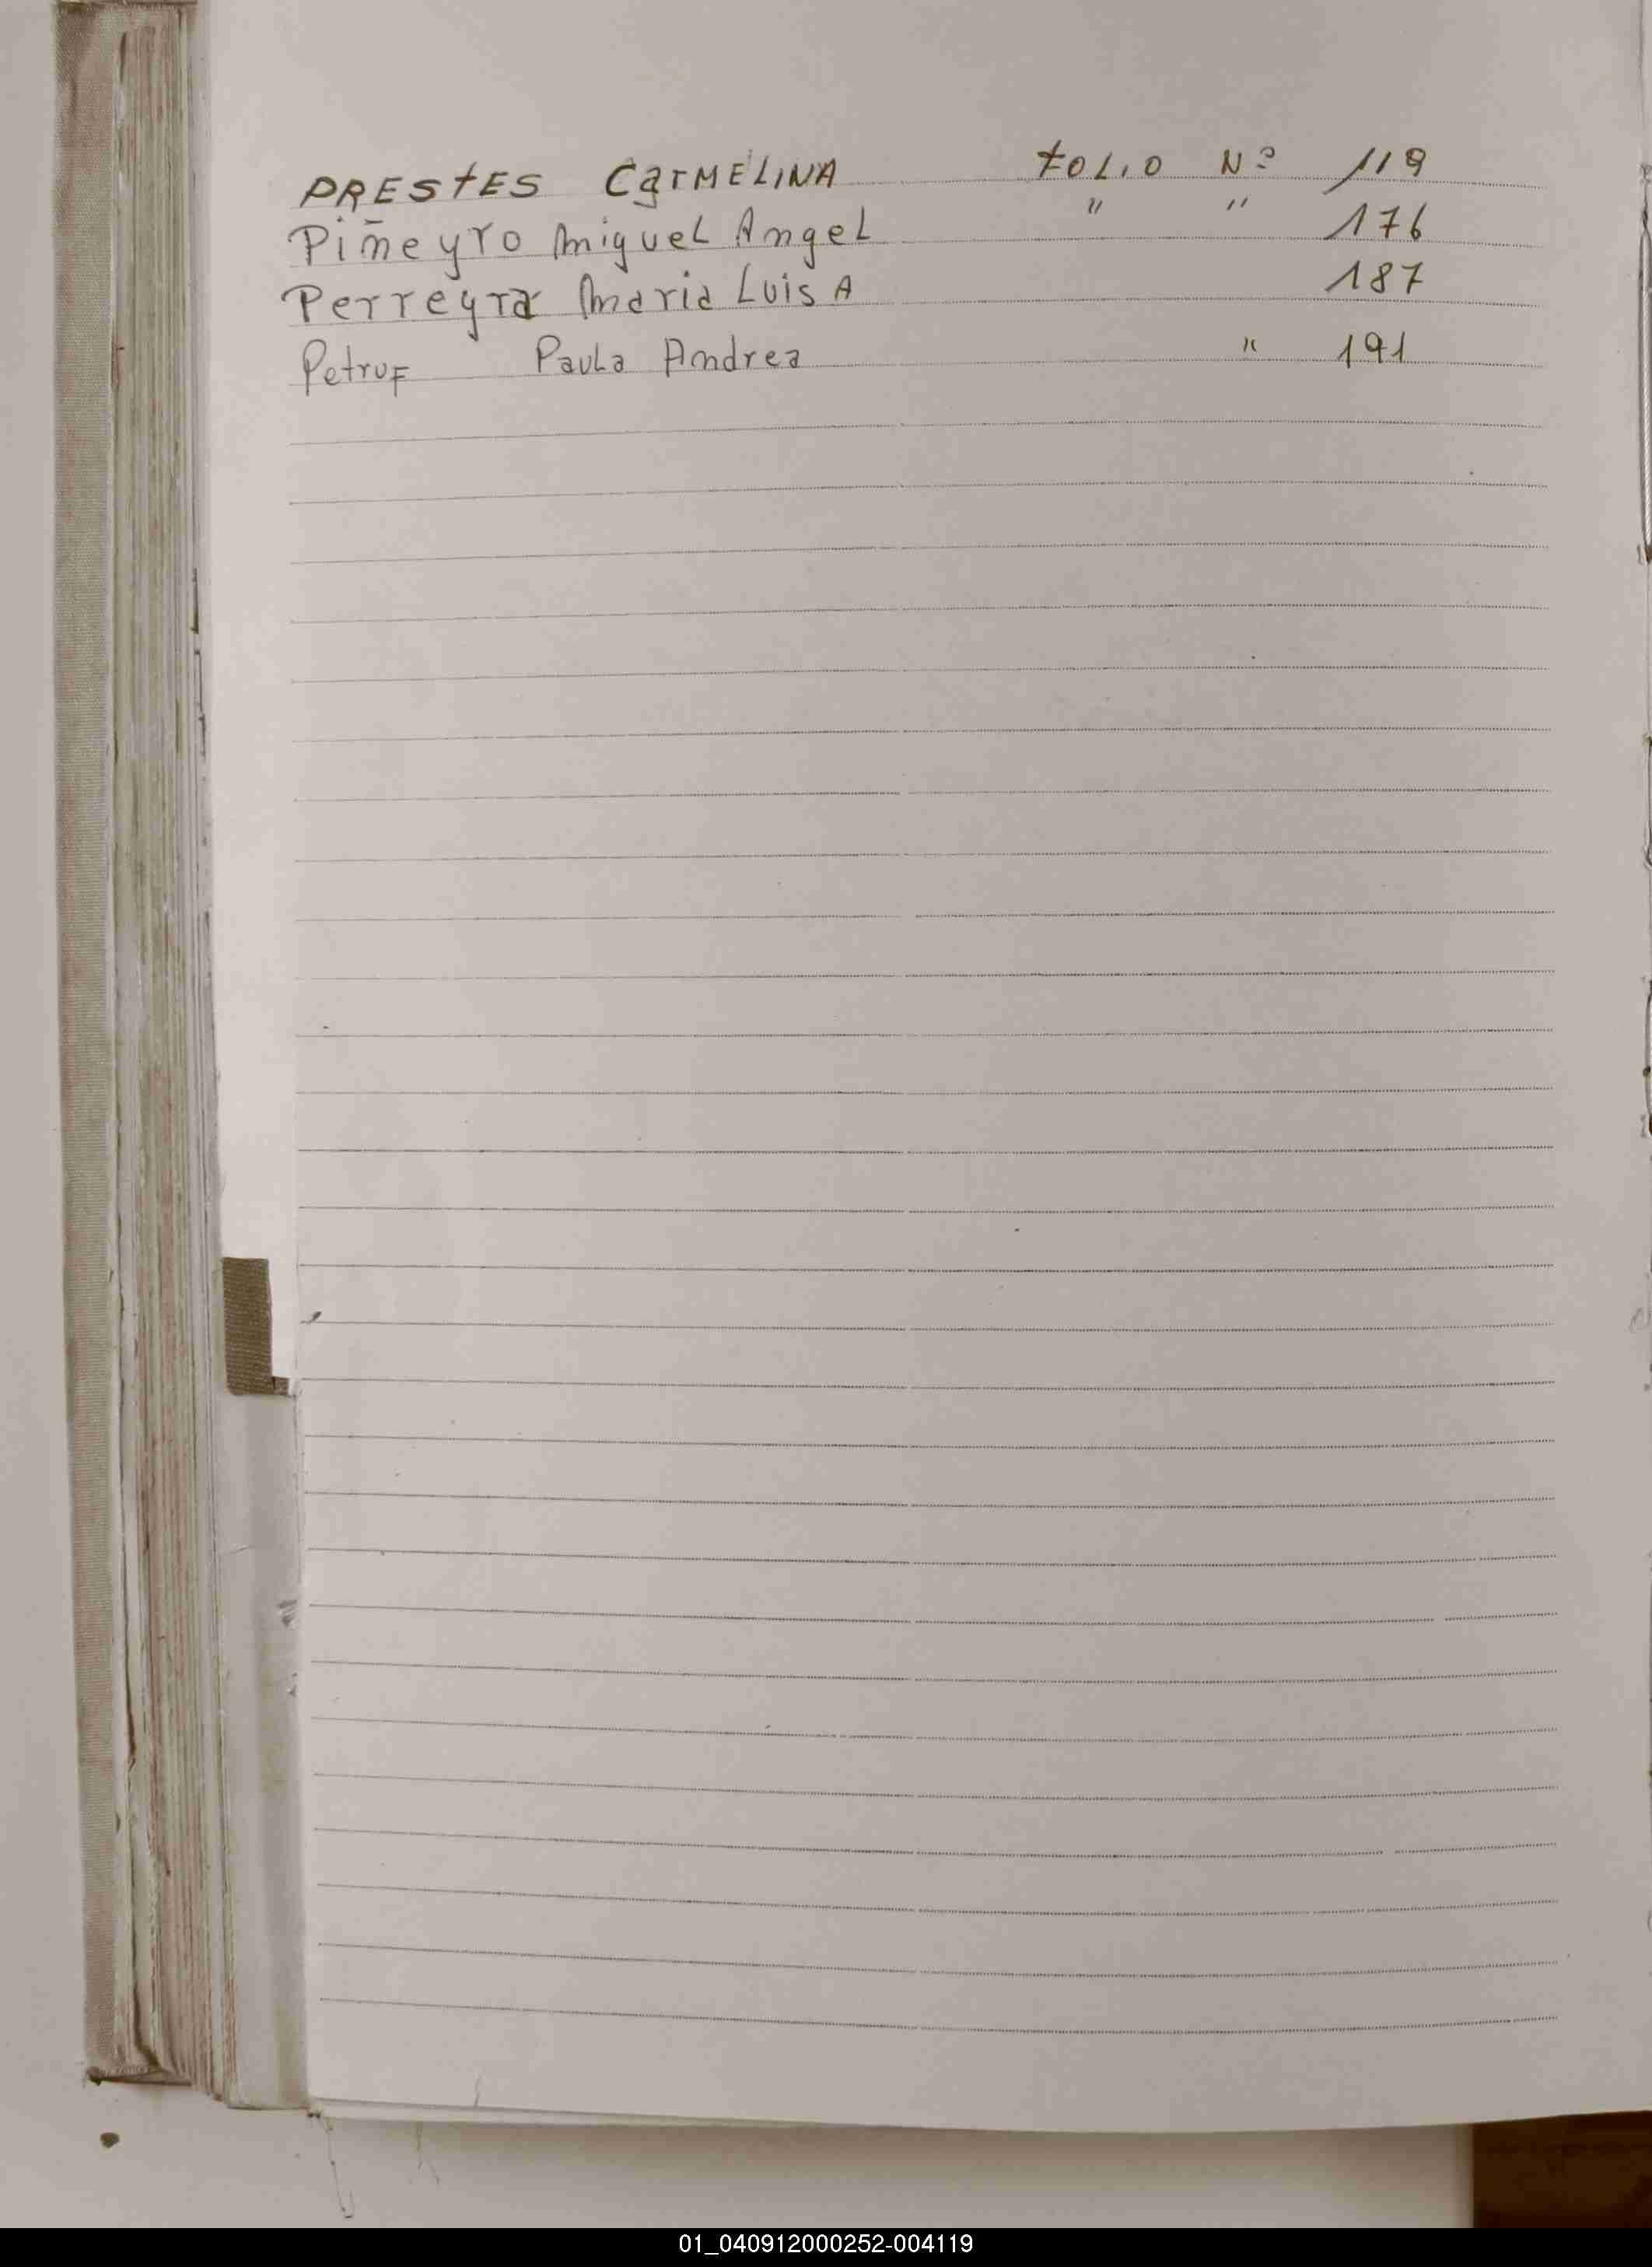 PRESTES CarMELINA FOLIO Nº 119
Piñeyro Miguel Angel " " 176
Perreyra Maria LuisA 187
Petruf Paula Andrea " 191
01_040912000252-004119